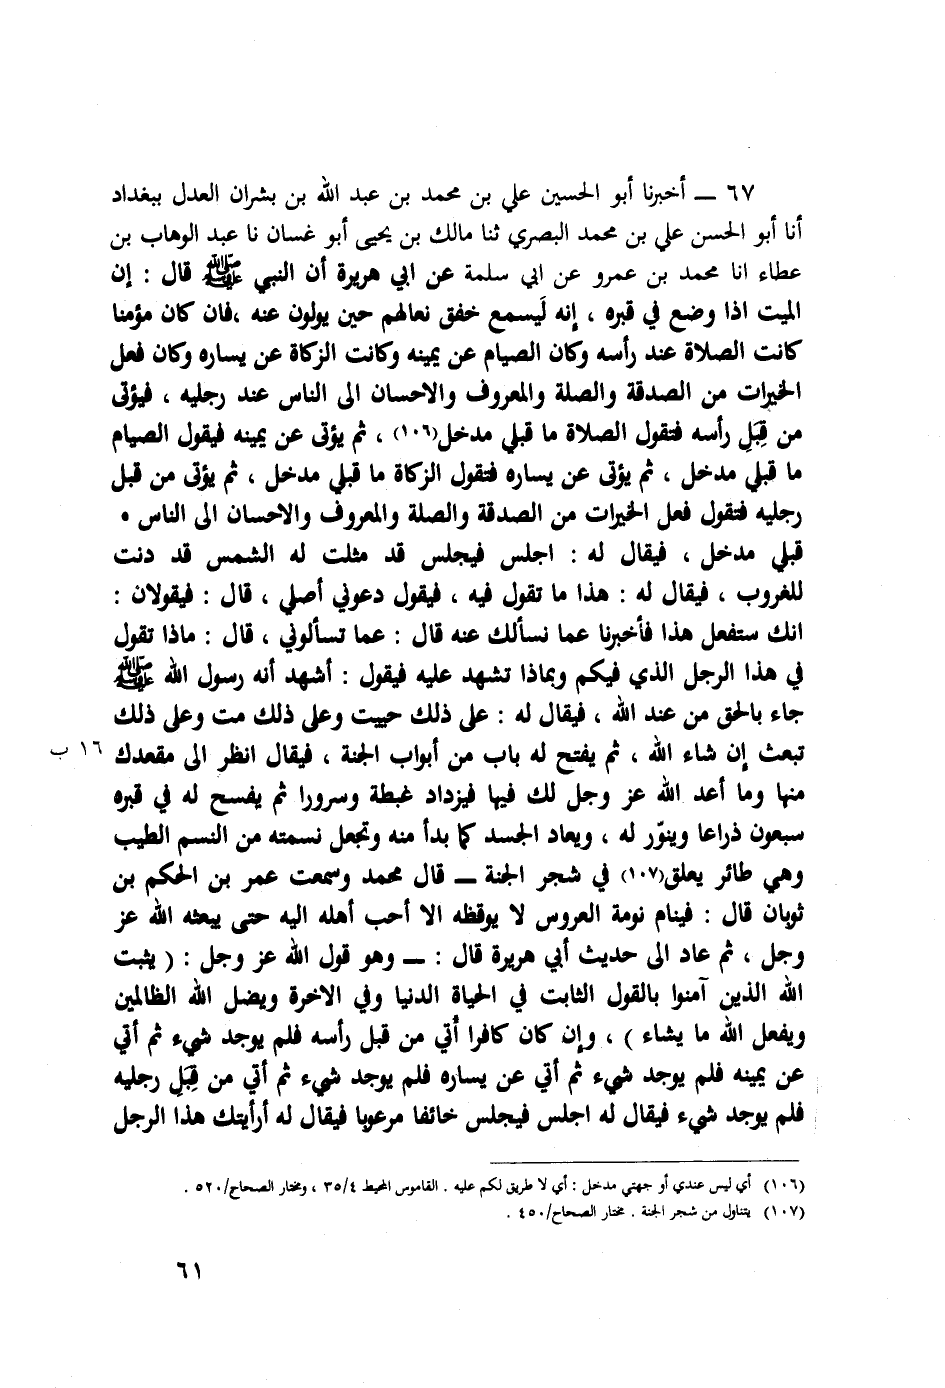 ٦٧ ــ أخبرنا أبو الحسين علي بن محمد بن عبد الله بن بشران العدل ببغداد
أنا أبو الحسن علي بن محمد البصري ثنا مالك بن يحيى أبو غسان نا عبد الوهاب بن
عطاء انا محمد بن عمرو عن ابي سلمة عن ابي هريرة أن النبي ﷺ قال : إن
الميت اذا وضع في قبره ، إنه لَيسمع خفق نعالهم حين يولون عنه ،فان كان مؤمنا
كانت الصلاة عند رأسه وكان الصيام عن يمينه وكانت الزكاة عن يساره وكان فعل
الخيرات من الصدقة والصلة والمعروف والاحسان الى الناس عند رجليه ، فيؤتى
من قِبَلِ رأسه فتقول الصلاة ما قبلي مدخل(١٠٦) ، ثم يؤتى عن يمينه فيقول الصيام
ما قبلي مدخل ، ثم يؤتى عن يساره فتقول الزكاة ما قبلي مدخل ، ثم يؤتى من قبل
رجليه فتقول فعل الخيرات من الصدقة والصلة والمعروف والاحسان الى الناس ٠
قبلي مدخل ، فيقال له : اجلس فيجلس قد مثلت له الشمس قد دنت
للغروب ، فيقال له : هذا ما تقول فيه ، فيقول دعوني أصلي ، قال : فيقولان :
انك ستفعل هذا فأخبرنا عما نسألك عنه قال : عما تسألوني ، قال : ماذا تقول
في هذا الرجل الذي فيكم وبماذا تشهد عليه فيقول : أشهد أنه رسول الله ﷺ
جاء بالحق من عند الله ، فيقال له : على ذلك حييت وعلى ذلك مت وعلى ذلك
تبعث إن شاء الله ، ثم يفتح له باب من أبواب الجنة ، فيقال انظر الى مقعدك ١٦ ب
منها وما أعد الله عز وجل لك فيها فيزداد غبطة وسرورا ثم يفسح له في قبره
سبعون ذراعا وينوّر له ، ويعاد الجسد كما بدأ منه وتجعل نسمته من النسم الطيب
وهي طائر يعلق(١٠٧) في شجر الجنة ــ قال محمد وسمعت عمر بن الحكم بن
ثوبان قال : فينام نومة العروس لا يوقظه الا أحب أهله اليه حتى يبعثه الله عز
وجل ، ثم عاد الى حديث أبي هريرة قال : ــ وهو قول الله عز وجل : ( يثبت
الله الذين آمنوا بالقول الثابت في الحياة الدنيا وفي الاخرة ويضل الله الظالمين
ويفعل الله ما يشاء ) ، وإن كان كافرا أُتي من قبل رأسه فلم يوجد شيء ثم أتي
عن يمينه فلم يوجد شيء ثم أتي عن يساره فلم يوجد شيء ثم أتي من قِبَلِ رجليه
فلم يوجد شيء فيقال له اجلس فيجلس خائفا مرعوبا فيقال له أرأيتك هذا الرجل
(١٠٦) أي ليس عندي أو جهتي مدخل : أي لا طريق لكم عليه . القاموس المحيط ٣٥/٤ ، ومختار الصحاح/٥٢٠ .
(١٠٧) يتناول من شجر الجنة . مختار الصحاح/٤٥٠ .
٦١